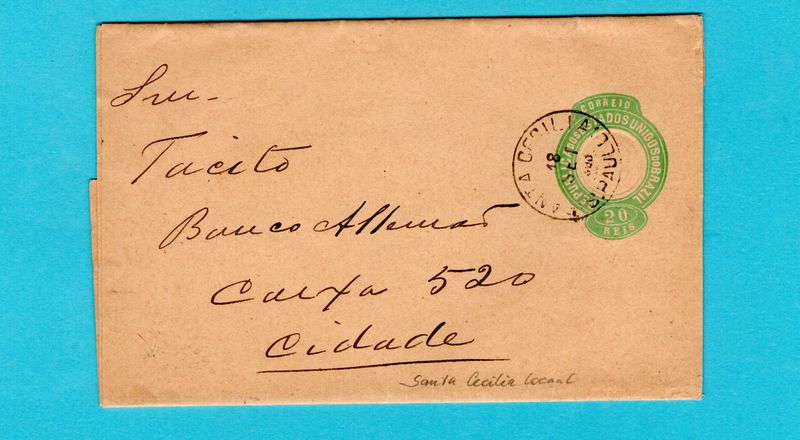 Snr.
Tacito
Banco Allemão
Caixa 520
Cidade
Santa Cecilia locaal
CORREIO
REPUBLICA DOS ESTADOS UNIDOS DO BRAZIL
20
REIS
SANTA CECILIA
S. PAULO
18
SET